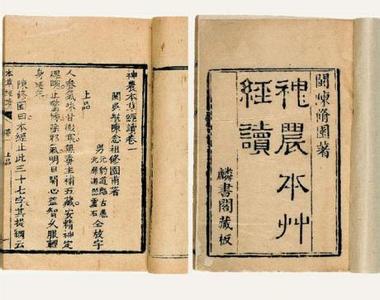 閩陳修園著
神農本艸
經讀
麟書閣藏板
神農本草經讀卷一
閩吳航陳念祖修園甫著
男
元豹道彪古愚
元犀道照靈石
仝校字
上品
人參氣味甘微寒無毒主補五藏安精神定
魂魄止驚悸除邪氣明目開心益智久服輕
身延年
陳修園曰本經止此三十七字其提綱云